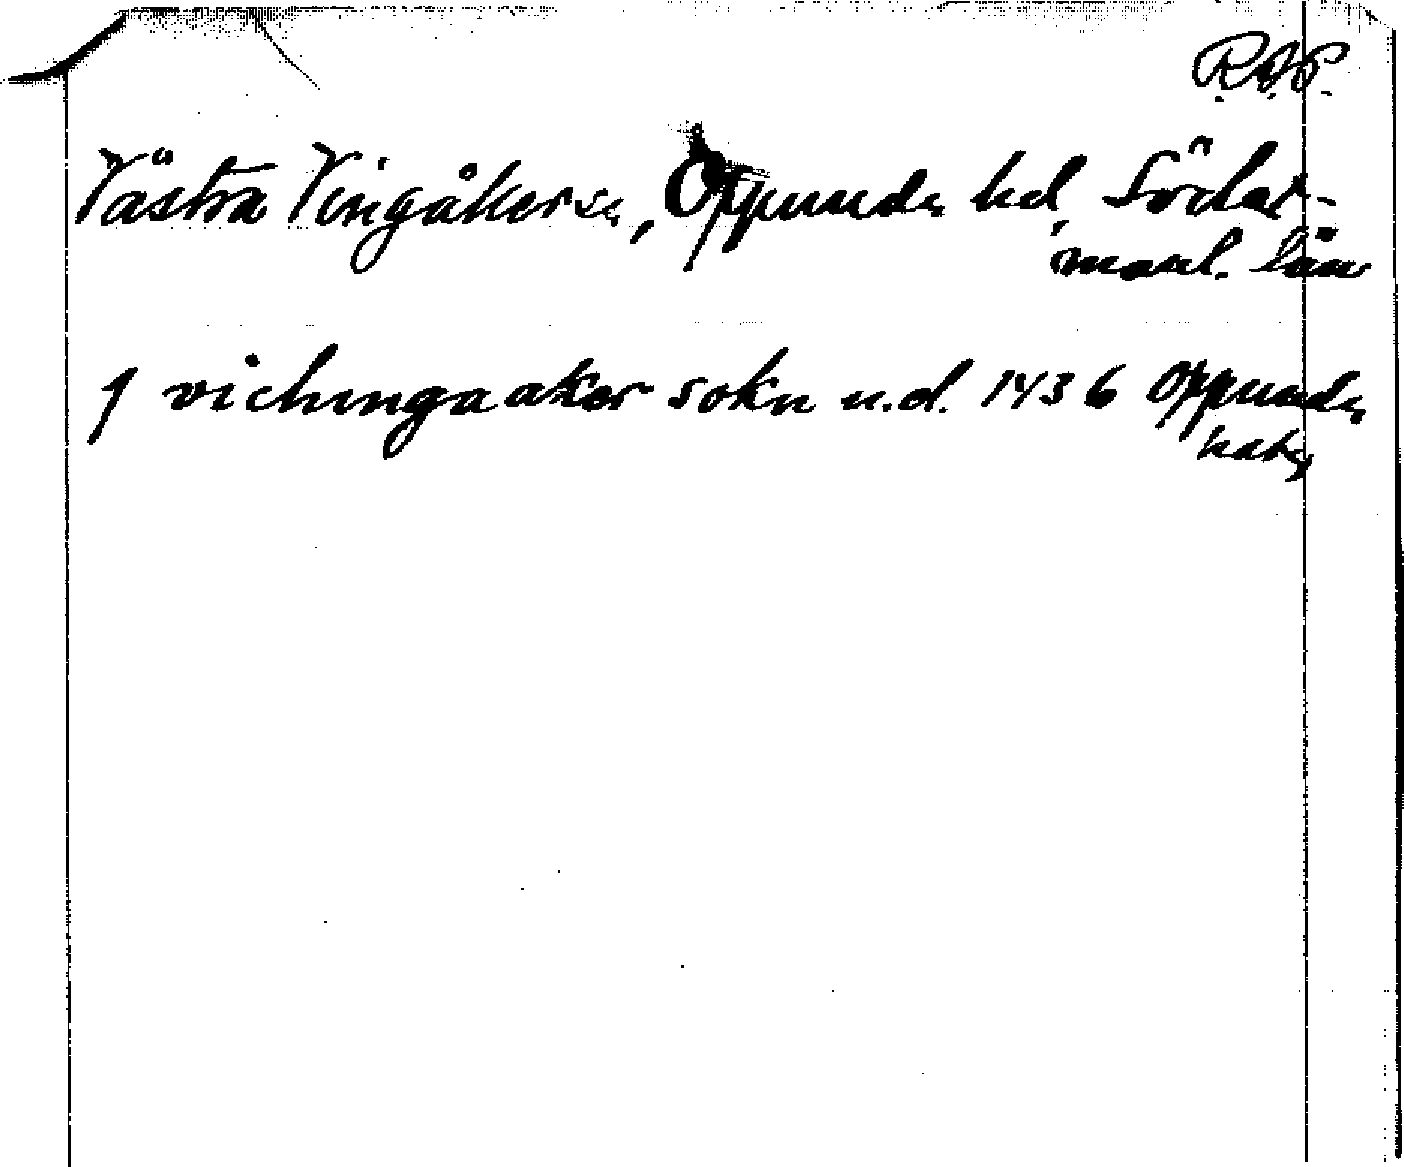 R.A.P.
Västra Vingåkers sn, Oppunda hd, Söder-
manl. län
J vichingaaker sokn u.d. 1436 Oppunda